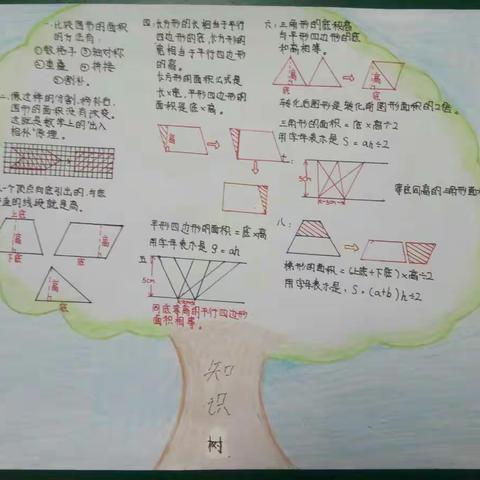 一.比较图形的面积
的方法有:
①数格子 ③轴对称
②重叠 ④拼接
⑤割补.
二.像这样的分割,移补白,
图形的面积没有改变.
这就是数学上的"出入
相补"原理.
一个顶点向底引出的,与底
的线段就是高.
上底
高
下底
高
底
高
底
四.长方形的长相当于平行
四边形的底,长方形的
宽相当于平行四边形
的高。
长方形的面积公式是
长×宽,平形四边形的
面积是底×高。
高
底
平形四边形的面积=底×高
用字母表示是 S=ah
五
5cm
同底等高的平行四边形
面积相等。
六:三角形的底和高
与平形四边形的底
和高相等。
高
底
高
底
转化后图形是转化前图形面积的2倍。
三角形的面积=底×高÷2
用字母表示是 S=ah÷2
七:
5cm
等底同高的三角形面积
八:
梯形的面积=(上底+下底)×高÷2
用字母表示是.S=(a+b)h÷2
知
识
树